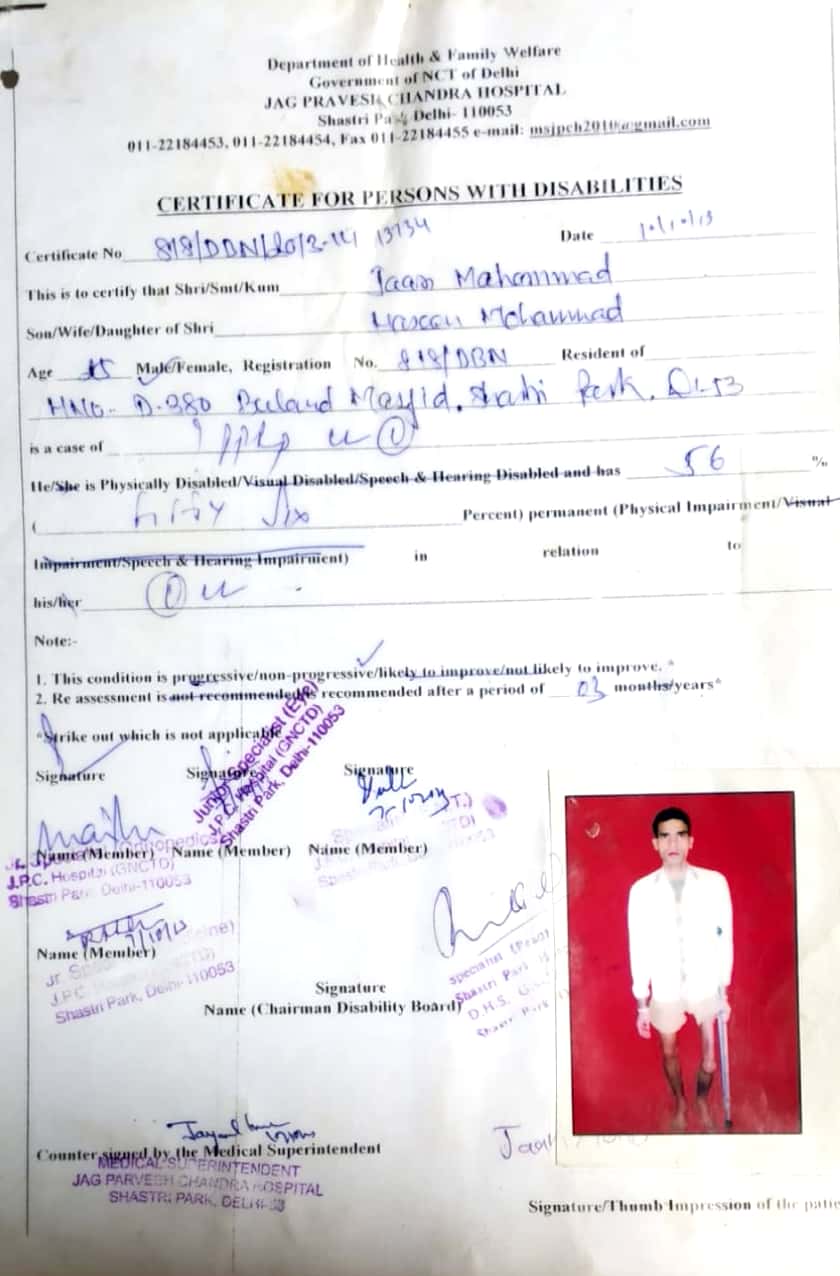 Department of Health & Family Welfare
Government of NCT of Delhi
JAG PRAVESH CHANDRA HOSPITAL
Shastri Park Delhi- 110053
011-22184453, 011-22184454, Fax 011-22184455 e-mail: msjpch2010@gmail.com
CERTIFICATE FOR PERSONS WITH DISABILITIES
Certificate No 818/DBN/2013-14 13734 Date 10/10/13
This is to certify that Shri/Smt/Kum Jaan Mohammad
Son/Wife/Daughter of Shri Hassan Mohammad
Age Male/Female, Registration No. 818/DBN Resident of
HNO- D-380 Buland Masjid, Shastri Park, Dl-53
is a case of PPRP
He/She is Physically Disabled/Visual Disabled/Speech & Hearing Disabled and has 56 %
( Fifty Six Percent) permanent (Physical Impairment/Visual
Impairment/Speech & Hearing Impairment) in relation to
his/her
Note:-
1. This condition is progressive/non-progressive/likely to improve/not likely to improve. *
2. Re assessment is not recommended/is recommended after a period of 03 months/years*
*Strike out which is not applicable
Junior Specialist (Eye)
J.P.C. Hospital (GNCTD)
Shastri Park, Delhi-110053
Signature Signature Signature
Name (Member) Name (Member) Name (Member)
J.P.C. Hospital (GNCTD)
Shastri Park Delhi-110053
7/10/13
Name (Member)
J.P.C.
Shastri Park, Delhi-110053
Specialist
Shastri Park
D.H.S.
Shastri Park
Signature
Name (Chairman Disability Board)
Counter signed by the Medical Superintendent
MEDICAL SUPERINTENDENT
JAG PARVESH CHANDRA HOSPITAL
SHASTRI PARK, DELHI-53
Signature/Thumb Impression of the patie